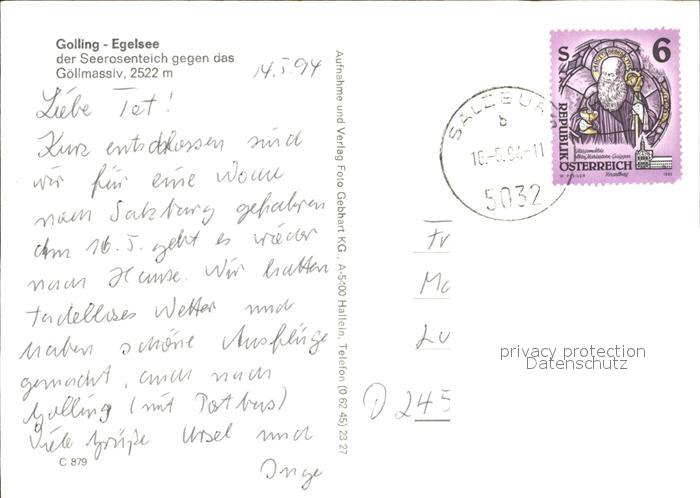 Golling - Egelsee
der Seerosenteich gegen das
Göllmassiv, 2522 m
14.5.94
Liebe Tet!
Kurz entschlossen sind
wir für eine Woche
nach Salzburg gefahren
Am 16.5. geht es wieder
nach Hause. Wir hatten
tadelloses Wetter und
haben schöne Ausflüge
gemacht, auch nach
Golling (mit Postbus)
Viele Grüße Ursel und
Inge
C 879
Aufnahme und Verlag Foto Gebhart KG., A-5400 Hallein, Telefon (0 62 45) 23 27
SALZBUR
b
16-5.94-11
5032
S 6
REPUBLIK
ÖSTERREICH
Fr
Ma
Lu
D 245
privacy protection
Datenschutz